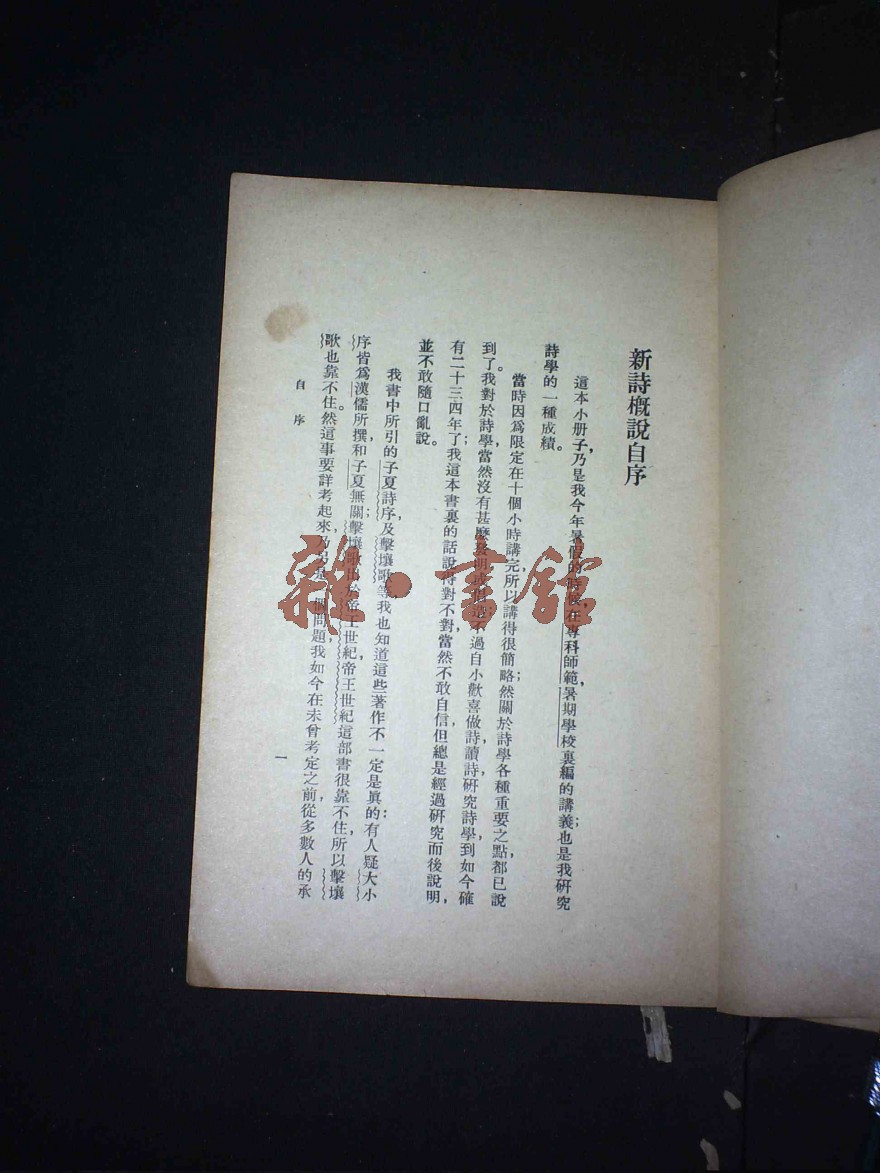 新詩概說自序
這本小册子，乃是我今年暑假的時候，在專科師範，暑期學校裏編的講義；也是我研究
詩學的一種成績。
當時因爲限定在十個小時講完，所以講得很簡略；然關於詩學各種重要之點，都已說
到了。我對於詩學，當然沒有甚麼發明或不過自小歡喜做詩，讀詩，研究詩學，到如今確
有二十三四年了；我這本書裏的話，說得對不對，當然不敢自信，但總是經過研究而後說明，
並不敢隨口亂說。
我書中所引的子夏詩序，及擊壤歌等，我也知道這些著作不一定是眞的：有人疑大小
序皆爲漢儒所撰，和子夏無關；擊壤歌出於帝王世紀，帝王世紀這部書很靠不住，所以擊壤
歌也靠不住。然這事要詳考起來，乃另是一個問題，我如今在未曾考定之前，從多數人的承
自序
一
雜·書館